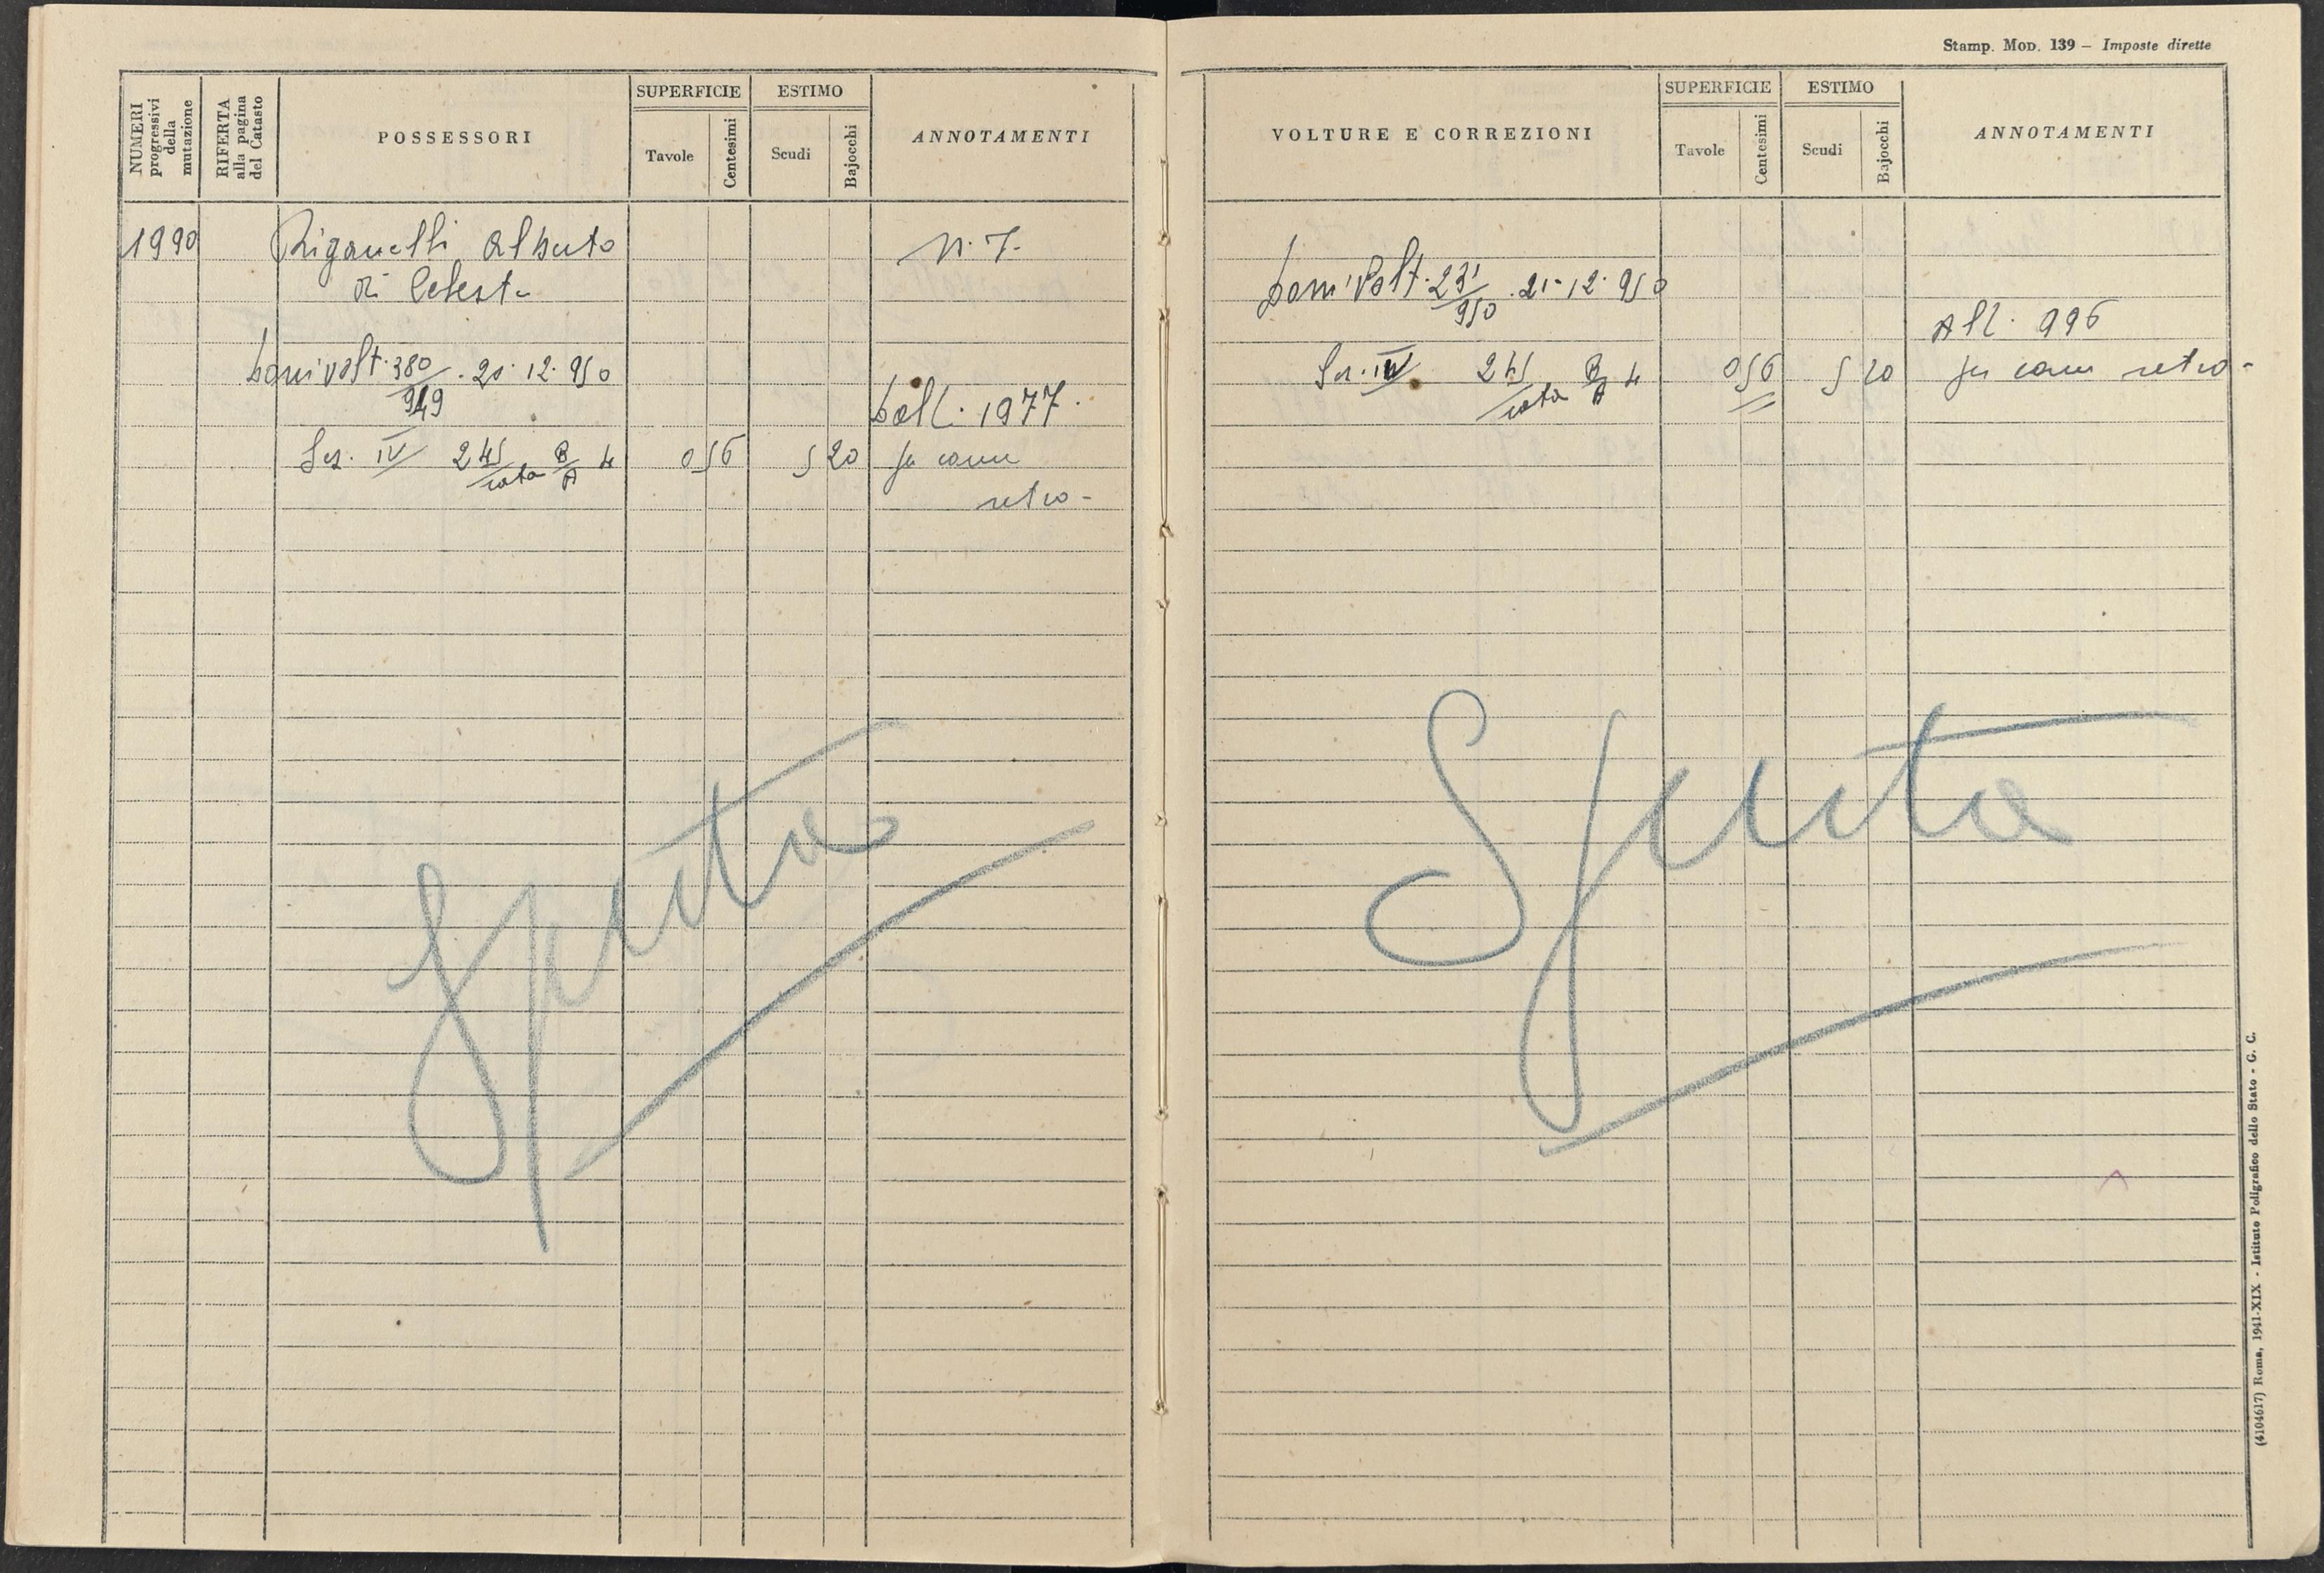 NUMERI progressivi della mutazione
RIFERTA alla pagina del Catasto
POSSESSORI
SUPERFICIE
Tavole
Centesimi
ESTIMO
Scudi
Bajocchi
ANNOTAMENTI
1990 Riganelli Alberto N. 7.
di Celeste
volt. 380/949 . 20. 12. 950
1977.
Sez. IV 245/rata B/A 4 0 56 5 20
retro -
Spenta
Stamp. Mod. 139 – Imposte dirette
VOLTURE E CORREZIONI
SUPERFICIE
Tavole
Centesimi
ESTIMO
Scudi
Bajocchi
ANNOTAMENTI
Volt. 231/950 . 21. 12. 950
All. 996
Sez. IV 245/rata B/A 4 0 56 5 20 retro -
Spenta
(4104617) Roma, 1941-XIX - Istituto Poligrafico dello Stato - G. C.